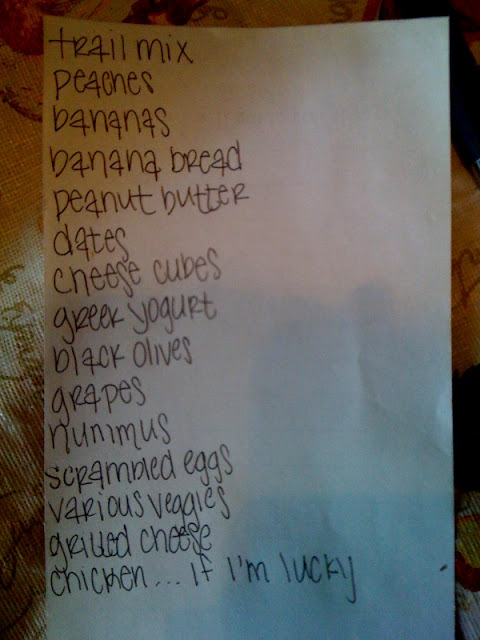 trail mix
peaches
bananas
banana bread
peanut butter
dates
cheese cubes
greek yogurt
black olives
grapes
hummus
scrambled eggs
various veggies
grilled cheese
chicken... if I'm lucky